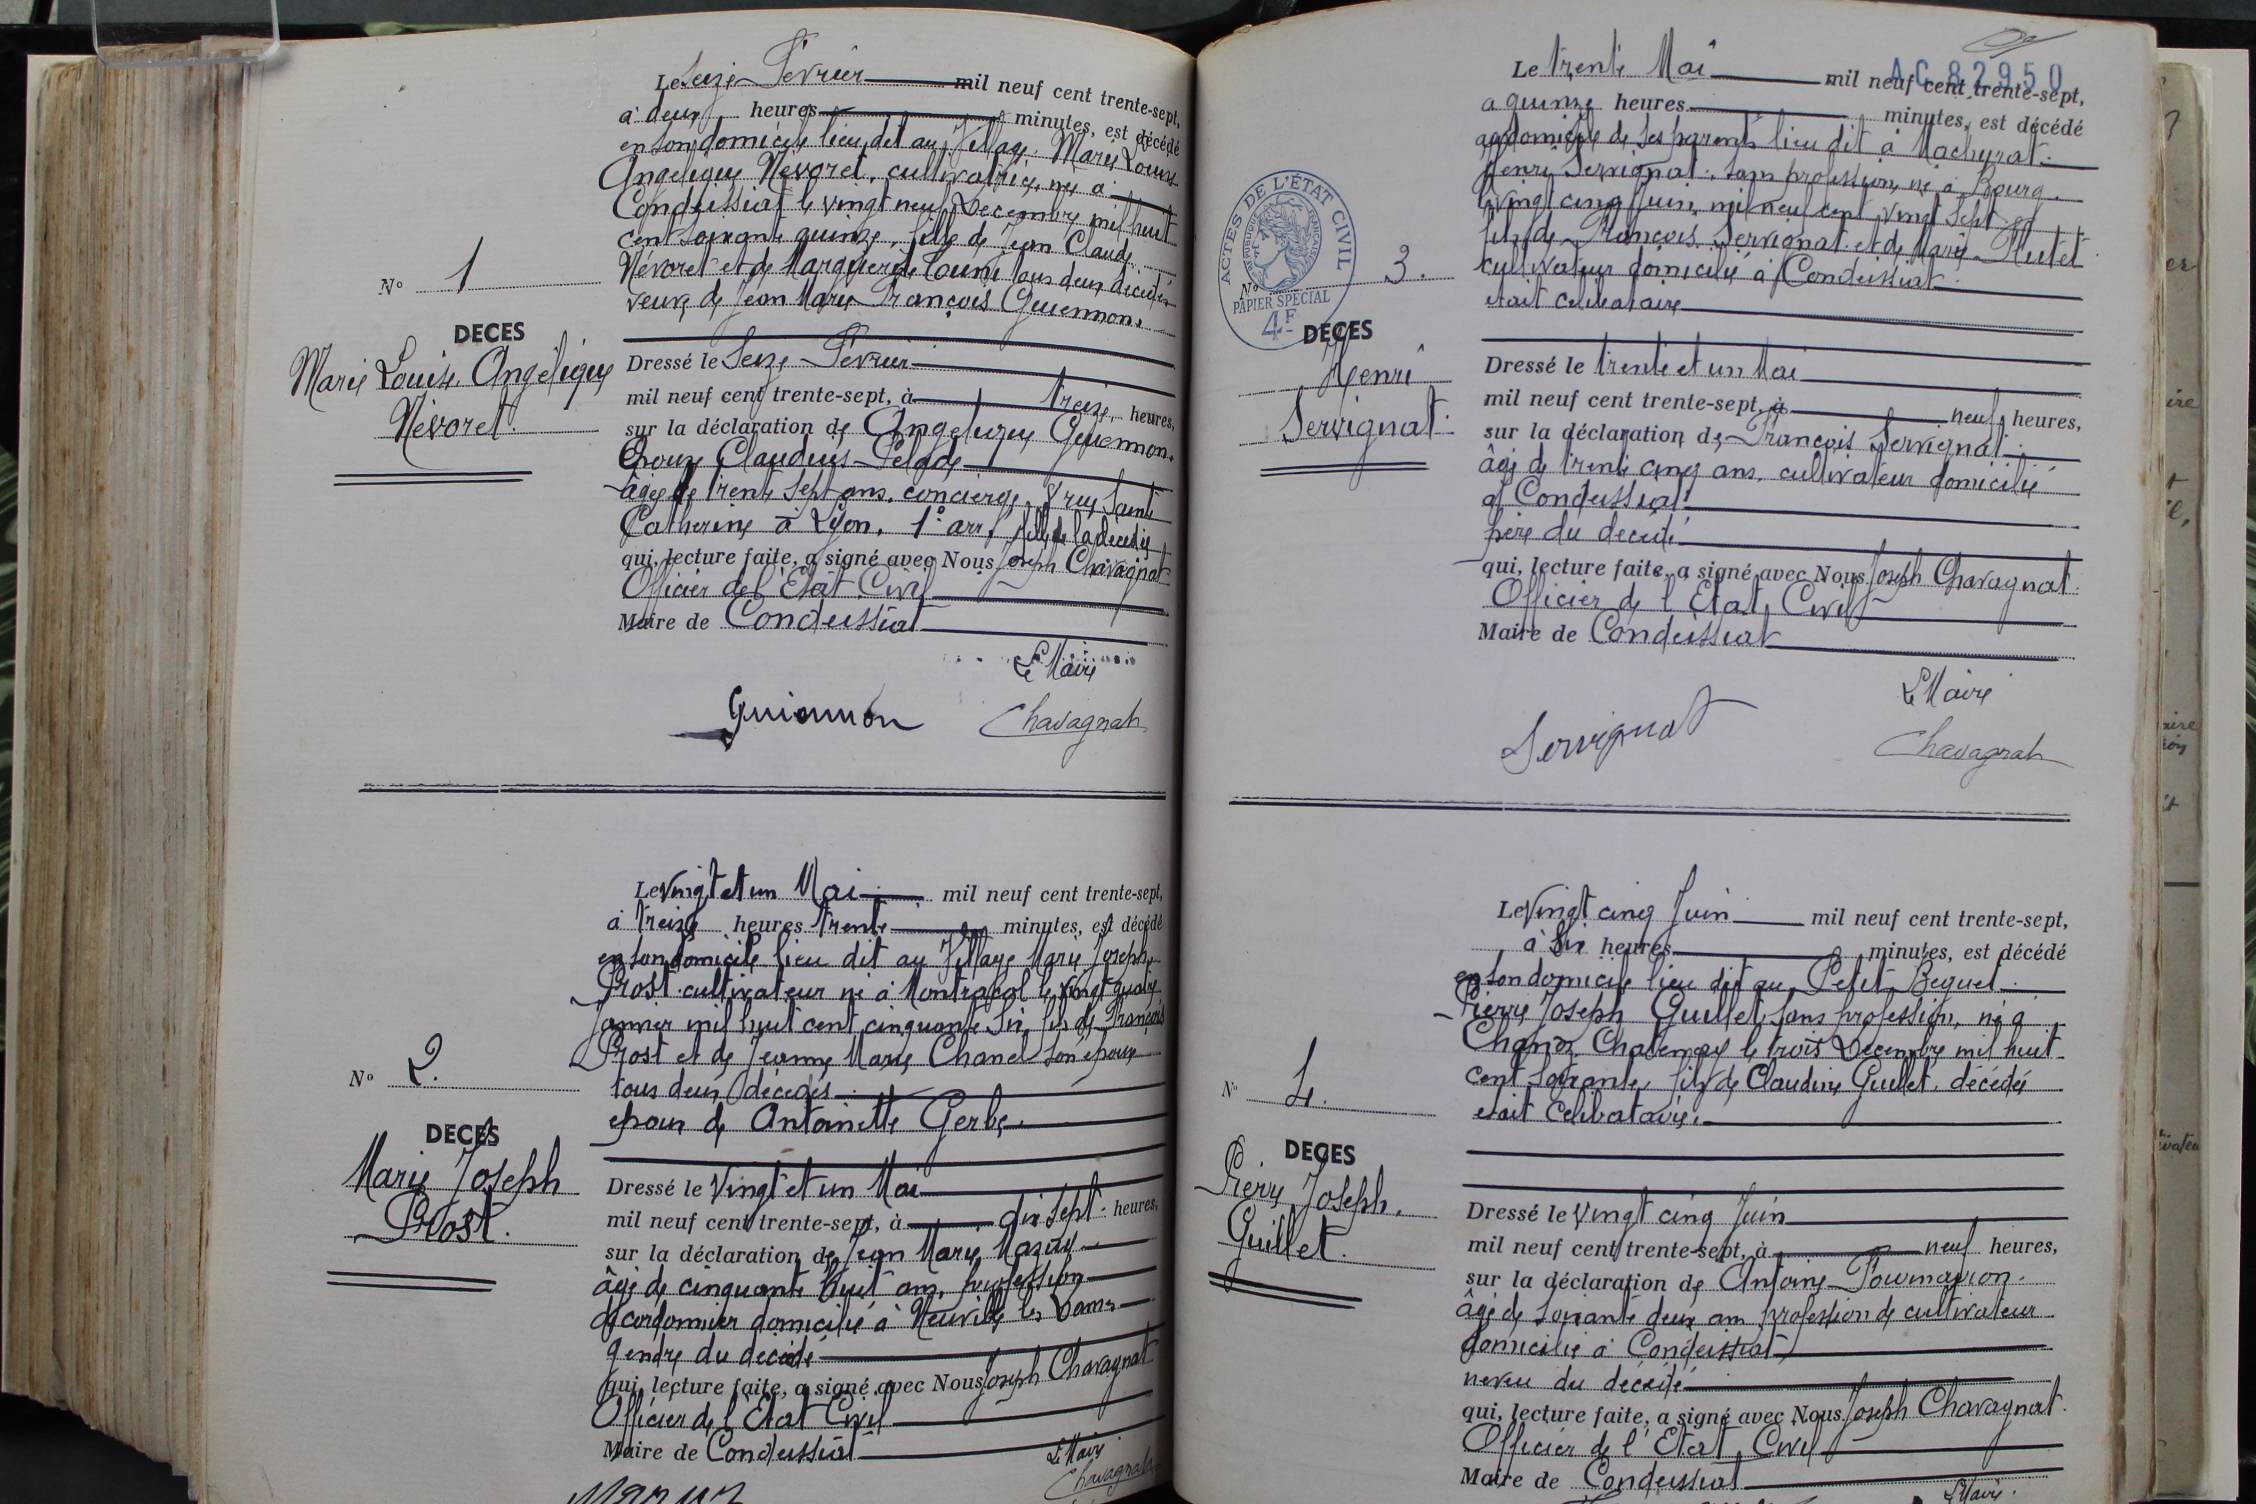 Le seize Février mil neuf cent trente-sept,
à deux heures minutes, est décédé
en son domicile lieu dit au Village Marie Louise
Angélique Névoret, cultivatrice, née à
Condeissiat le vingt neuf Décembre mil huit
cent soixante quinze, fille de Jean Claude
Névoret et de Marguerite tous deux décédés
veuve de Jean Marie François Guiennon.
N° 1
DECES
Marie Louise Angélique
Névoret.
Dressé le Seize Février
mil neuf cent trente-sept, à treize heures,
sur la déclaration de Angélique Guiennon
Epouse Claudius Pelade
âgée de trente sept ans, concierge, 8 rue Sainte
Catherine à Lyon, 1° arr, fille de la décédée
qui, lecture faite, a signé avec Nous Joseph Chavagnat
Officier de l'Etat Civil
Maire de Condeissiat
Le Maire
Guiennon Chavagnat
Le vingt et un Mai mil neuf cent trente-sept,
à treize heures trente minutes, est décédé
en son domicile lieu dit au Village Marie Joseph
Prost cultivateur né à Montracol le vingt quatre
Janvier mil huit cent cinquante six, fils de François
Prost et de Jeanne Marie Chanel son épouse
tous deux décédés
époux de Antoinette Gerbe.
N° 2.
DECES
Marie Joseph
Prost.
Dressé le vingt et un Mai
mil neuf cent trente-sept, à dix sept heures,
sur la déclaration de Jean Marie Mazuy
âgé de cinquante huit ans, profession
de cordonnier domicilié à Neuville les Dames
gendre du décédé
qui, lecture faite, a signé avec Nous Joseph Chavagnat
Officier de l'Etat Civil
Maire de Condeissiat
Le Maire
Chavagnat
Mazuy
AC 82950
Le trente Mai mil neuf cent trente-sept,
à quinze heures minutes, est décédé
au domicile de ses parents lieu dit à Machurat
Henri Servignat, sans profession, né à Bourg
le vingt cinq Juin mil neuf cent vingt sept
fils de François Servignat et de Marie Hutet
cultivateur domicilié à Condeissiat
était célibataire
ACTES DE L'ÉTAT CIVIL
RÉPUBLIQUE FRANÇAISE
PAPIER SPECIAL
4F
N° 3.
DECES
Henri
Servignat.
Dressé le trente et un Mai
mil neuf cent trente-sept, à neuf heures,
sur la déclaration de François Servignat
âgé de trente cinq ans, cultivateur domicilié
à Condeissiat
père du décédé
qui, lecture faite, a signé avec Nous Joseph Chavagnat.
Officier de l'Etat Civil
Maire de Condeissiat
Le Maire
Servignat Chavagnat
Le vingt cinq Juin mil neuf cent trente-sept,
à six heures minutes, est décédé
en son domicile lieu dit au Petit Bequet
Pierre Joseph Guillet, sans profession, né à
Chanoz Chatenay le trois Décembre mil huit
cent soixante, fils de Claudine Guillet décédée
était célibataire.
N° 4.
DECES
Pierre Joseph
Guillet.
Dressé le vingt cinq Juin
mil neuf cent trente-sept, à neuf heures,
sur la déclaration de Antoine Fourmayron.
âgé de soixante deux ans profession de cultivateur
domicilié à Condeissiat
neveu du décédé
qui, lecture faite, a signé avec Nous Joseph Chavagnat.
Officier de l'Etat Civil
Maire de Condeissiat
Le Maire.